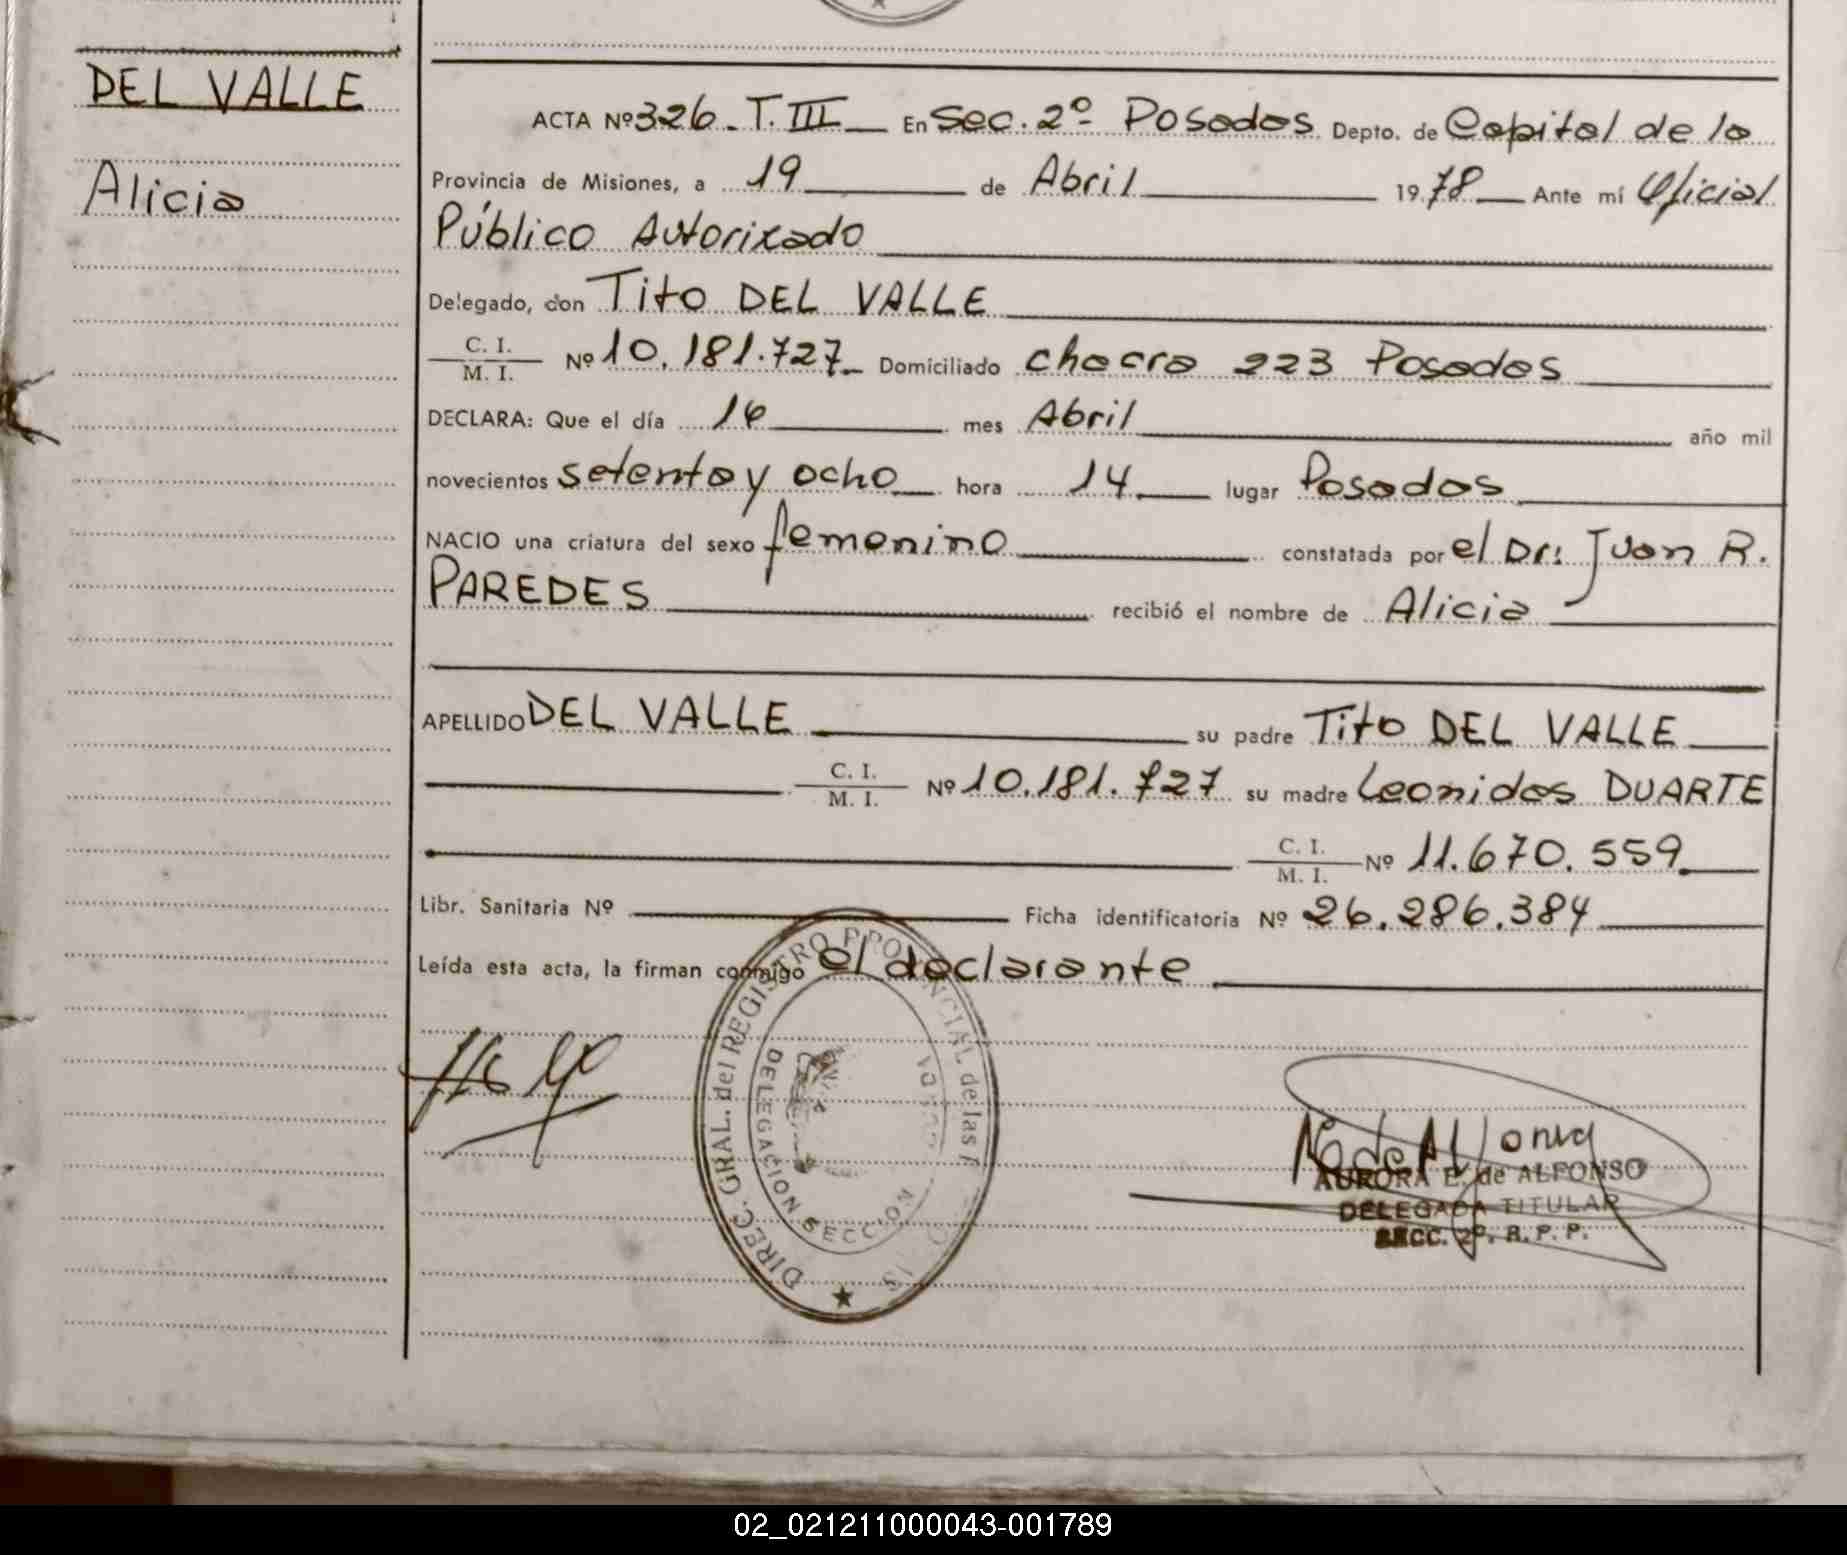 DEL VALLE
Alicia
ACTA Nº 326 - T. III En Sec. 2º Posadas Depto. de Capital de la
Provincia de Misiones, a 19 de Abril 1978 Ante mí Oficial
Público Autorizado
Delegado, don Tito DEL VALLE
C. I.
M. I. Nº 10.181.727 Domiciliado chacra 223 Posadas
DECLARA: Que el día 16 mes Abril año mil
novecientos setenta y ocho hora 14 lugar Posadas
NACIO una criatura del sexo femenino constatada por el Dr: Juan R.
PAREDES recibió el nombre de Alicia
APELLIDO DEL VALLE su padre Tito DEL VALLE
C. I.
M. I. Nº 10.181.727 su madre Leonidas DUARTE
C. I.
M. I. Nº 11.670.559
Libr. Sanitaria Nº Ficha identificatoria Nº 26.286.384
Leída esta acta, la firman conmigo el declarante
DIREC. GRAL. del REGISTRO PROVINCIAL de las
DELEGACION SECCION
AURORA E. de ALFONSO
DELEGADA TITULAR
SECC. 2º. R. P. P.
02_021211000043-001789